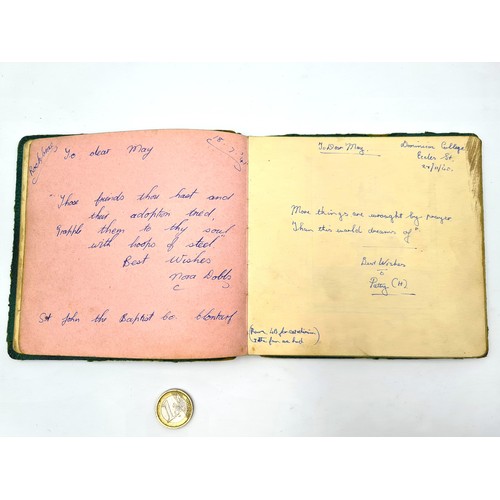 To dear May
"Those friends thou hast and
their adoption tried,
Grapple them to thy soul
with hoops of steel"
Best Wishes
Nora Dobbs
St John the Baptist Co. Clontarf
To Dear May.
Dominican College
Eccles St.
More things are wrought by prayer
Than this world dreams of".
Best Wishes
Patsy (H)